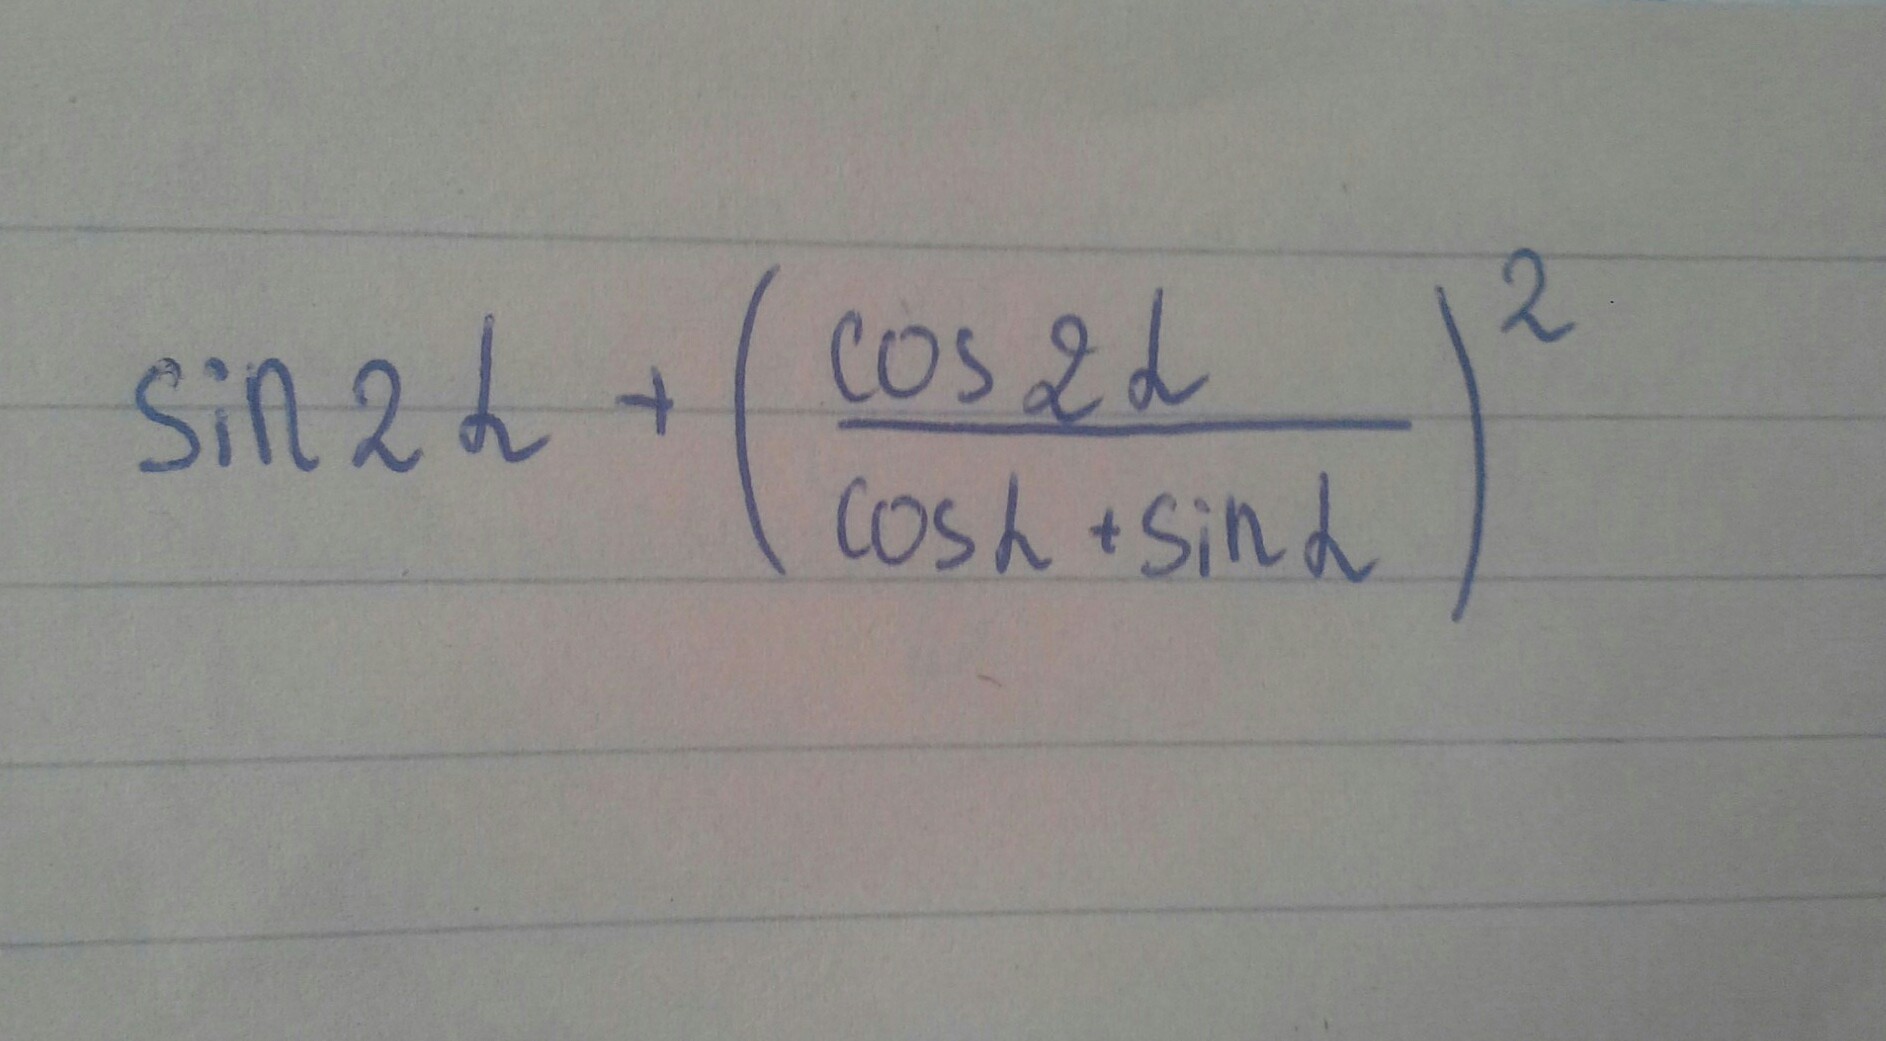 sin 2α + (cos 2α / (cos α + sin α))²